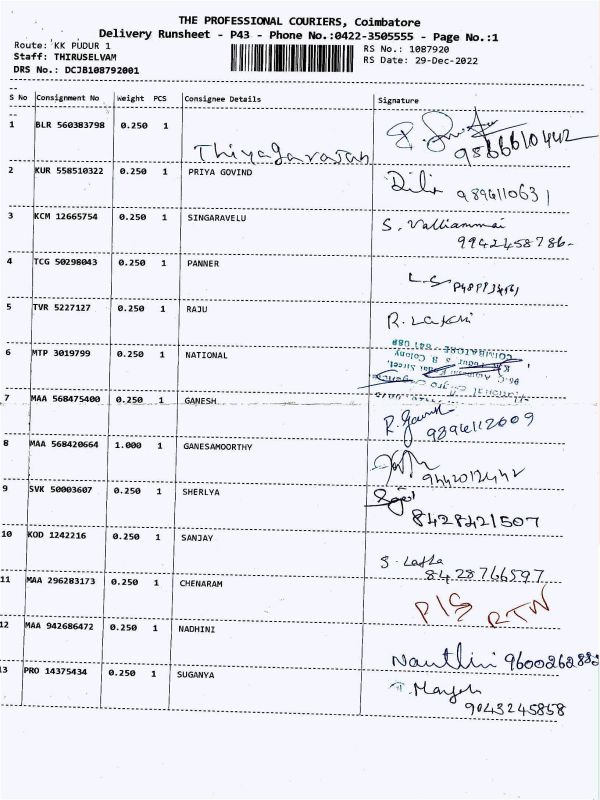 THE PROFESSIONAL COURIERS, Coimbatore
Delivery Runsheet - P43 - Phone No.:0422-3505555 - Page No.:1
Route: KK PUDUR 1
RS No.: 1087920
Staff: THIRUSELVAM
RS Date: 29-Dec-2022
DRS No.: DCJB108792001
S No Consignment No Weight PCS Consignee Details Signature
1 BLR 560383798 0.250 1
Thiyagarajan
9866610442
2 KUR 558510322 0.250 1 PRIYA GOVIND Dilip
9894110631
3 KCM 12665754 0.250 1 SINGARAVELU S. Valliammai
9942458786
4 TCG 50298043 0.250 1 PANNER L.S
5 TVR 5227127 0.250 1 RAJU R. Lakshi
6 MTP 3019799 0.250 1 NATIONAL
COIMBATORE - 641 038
7 MAA 568475400 0.250 1 GANESH
9894112609
8 MAA 568420664 1.000 1 GANESAMOORTHY
9442012442
9 SVK 50003607 0.250 1 SHERLYA
8428421507
10 KOD 1242216 0.250 1 SANJAY S. Latha
8428766597
11 MAA 296283173 0.250 1 CHENARAM P/S RTN
12 MAA 942686472 0.250 1 NADHINI
Nanthini 9600262882
13 PRO 14375434 0.250 1 SUGANYA
9043245858